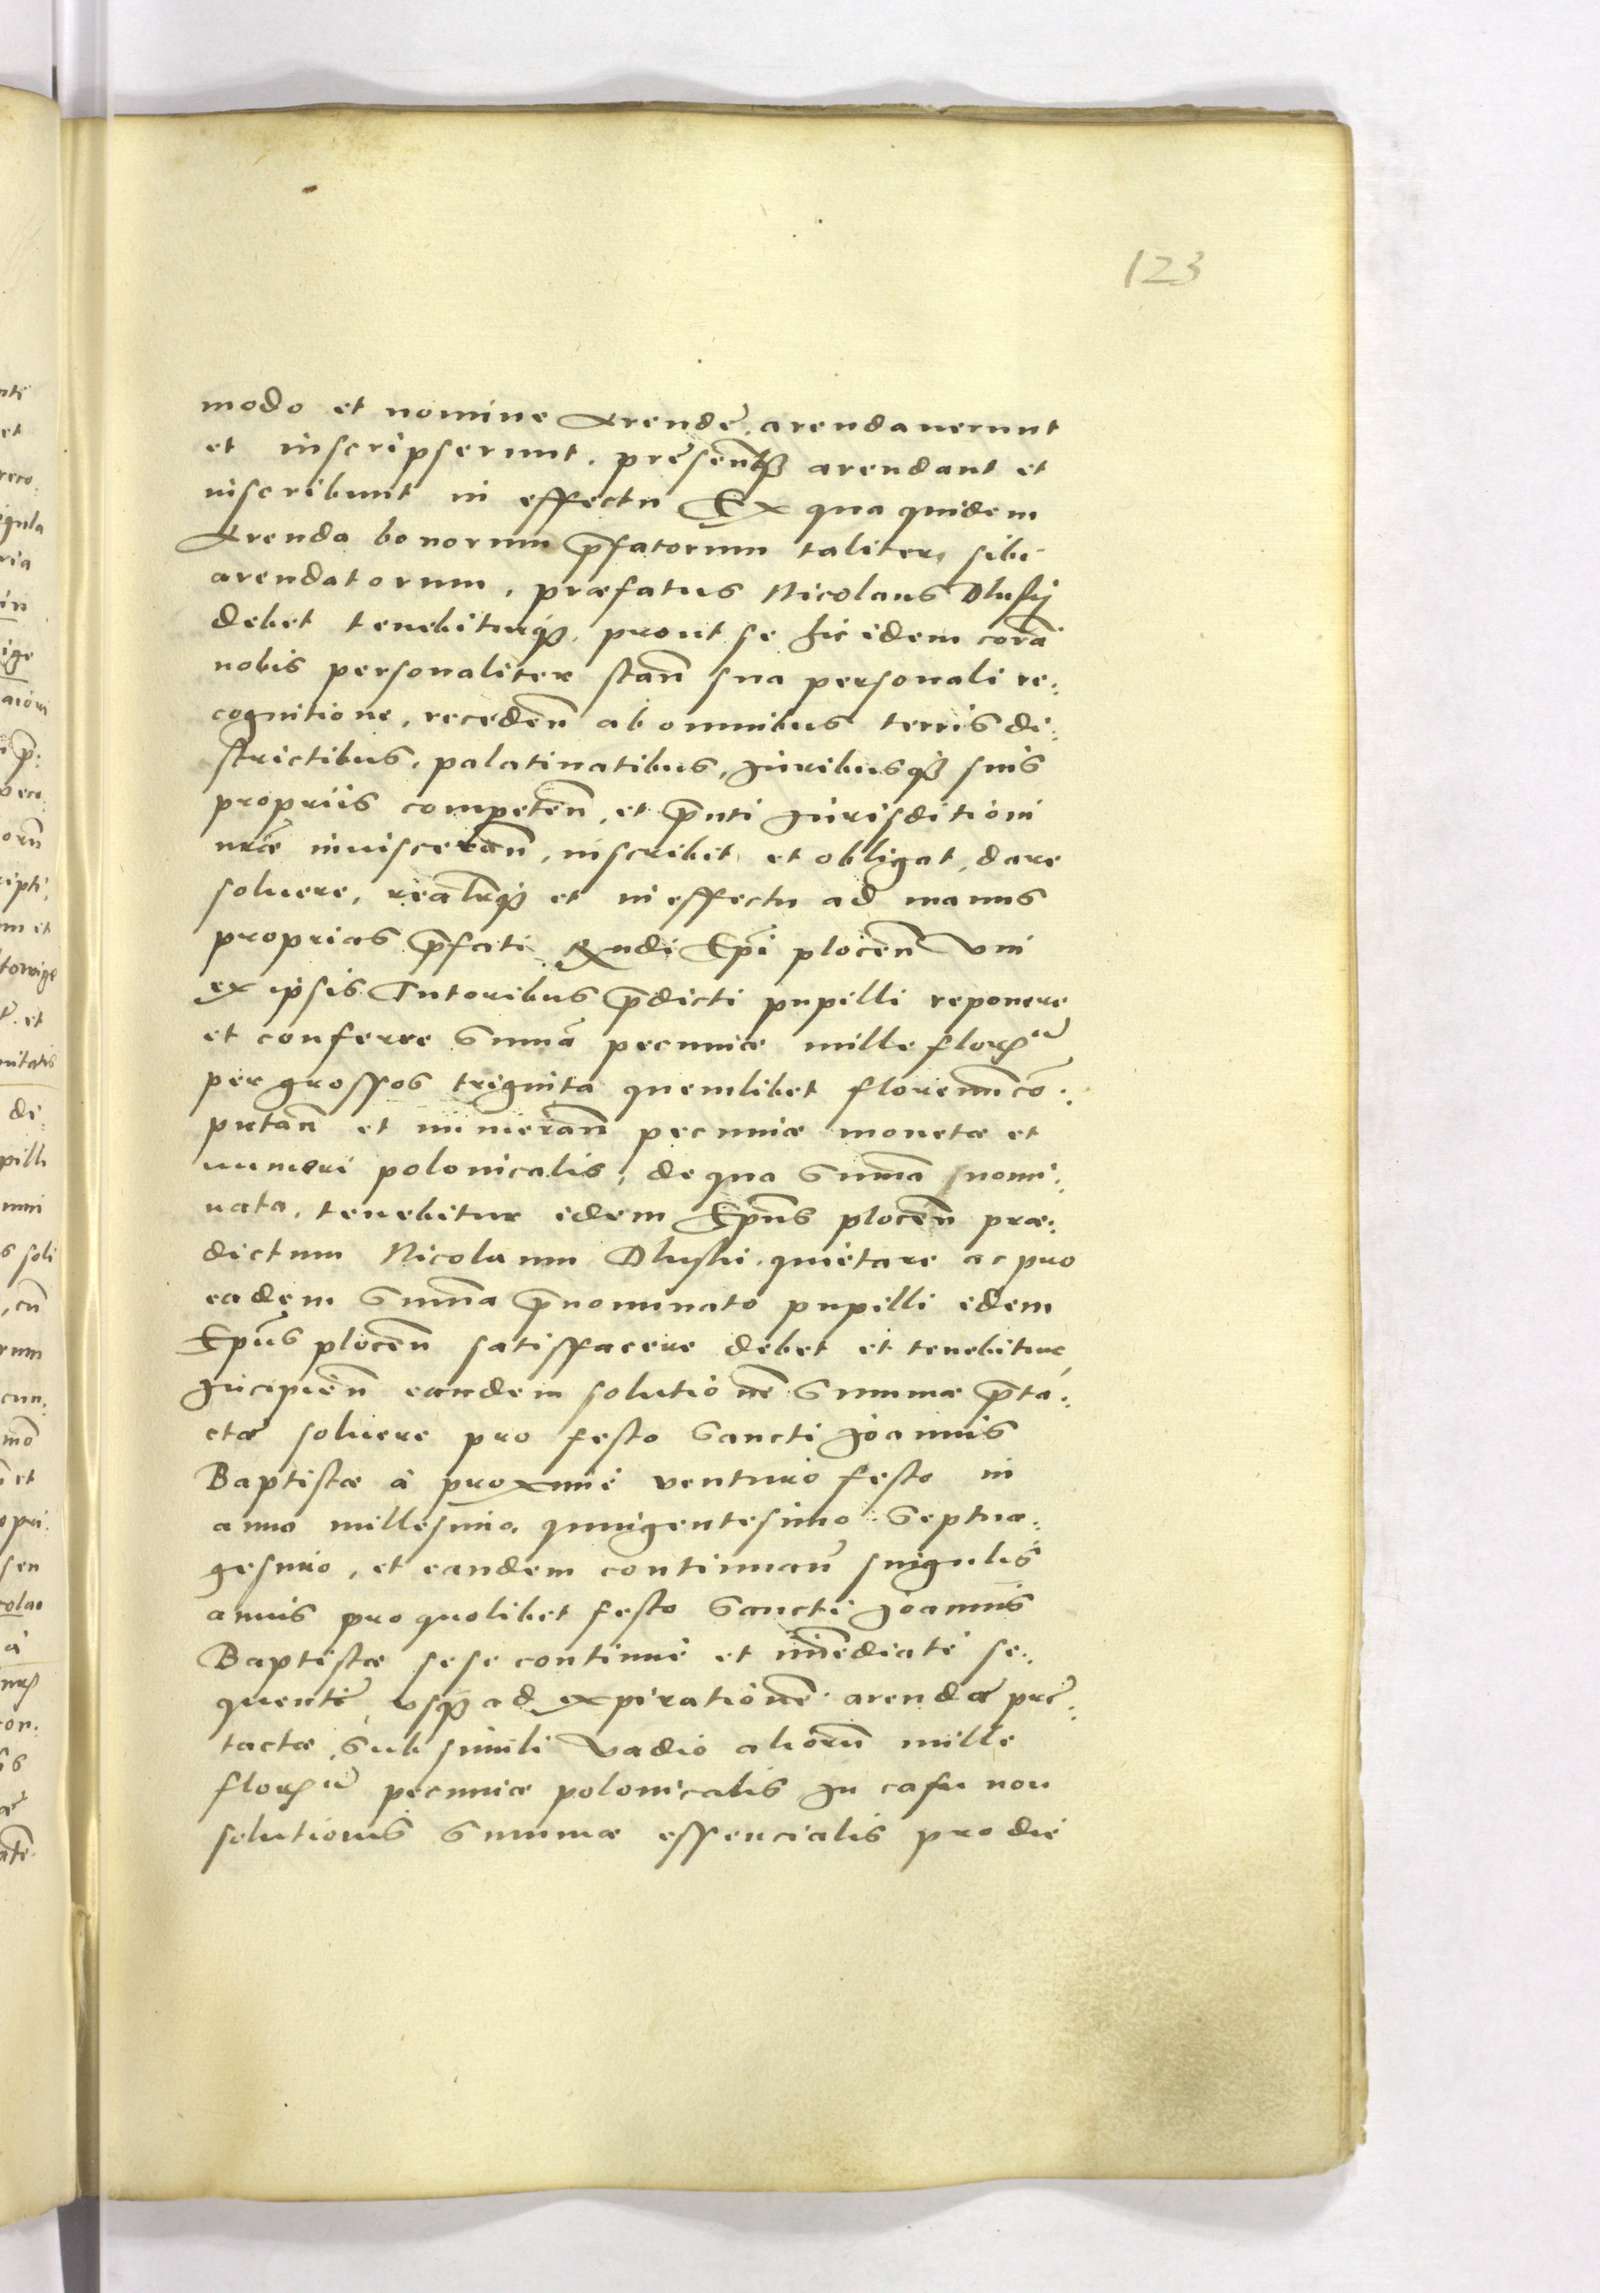 123
modo et nomine Arendę. arendauerunt
et inscripserunt. pręsentq₃ arendant et
inscribunt in effectu Ex qua quidem
Arenda bonorum p̄fatorum taliter sibi
arendatorum, præfatus Nicolaus Dlusky
debet tenebiturq₃. prout se hic idem corā
nobis personaliter stan̄ sua personali re:
cognitione, receden̄ ab omnibus terris di:
strictibus, palatinatibus, Juribusq₃ suis
propriis competen̄, et p̄nti Jurisditioni
nr̄æ inuisceran̄, inscribit et obligat, dare
soluere, realrq₃ et in effectu ad manus
proprias p̄fati Rndi Epi plocen̄ Vni
ex ipsis Tutoribus p̄dicti pupilli reponere
et conferre Sumā pecuniæ mille florenorū
per grossos triginta quemlibet florenum cō:
putan̄ et numeran̄ pecuniæ monetæ et
numeri polonicalis, de qua Sum̄a snomi:
nata, tenebitur idem Epūs plocen̄ præ:
dictum Nicolaum Dluski quietare ac pro
eadem Sum̄a p̄nominato pupilli idem
Epūs plocen̄ satisfacere debet et tenebitur
Incipien̄ eandem solutionē Summæ p̄ta:
ctæ soluere pro festo Sancti Joannis
Baptistæ à proxime venturo festo in
anno millesimo quingentesimo Septua:
gesimo, et eandem continuan̄ singulis
annis pro quolibet festo Sancti Joannis
Baptistæ sese continué et im̄ediaté se:
quentē usq₃ ad expirationē arendæ prę:
tactæ, Sub simili Vadio aliorum̄ mille
florenorū pecuniæ polonicalis In casu non
solutionis Summæ essencialis pro die